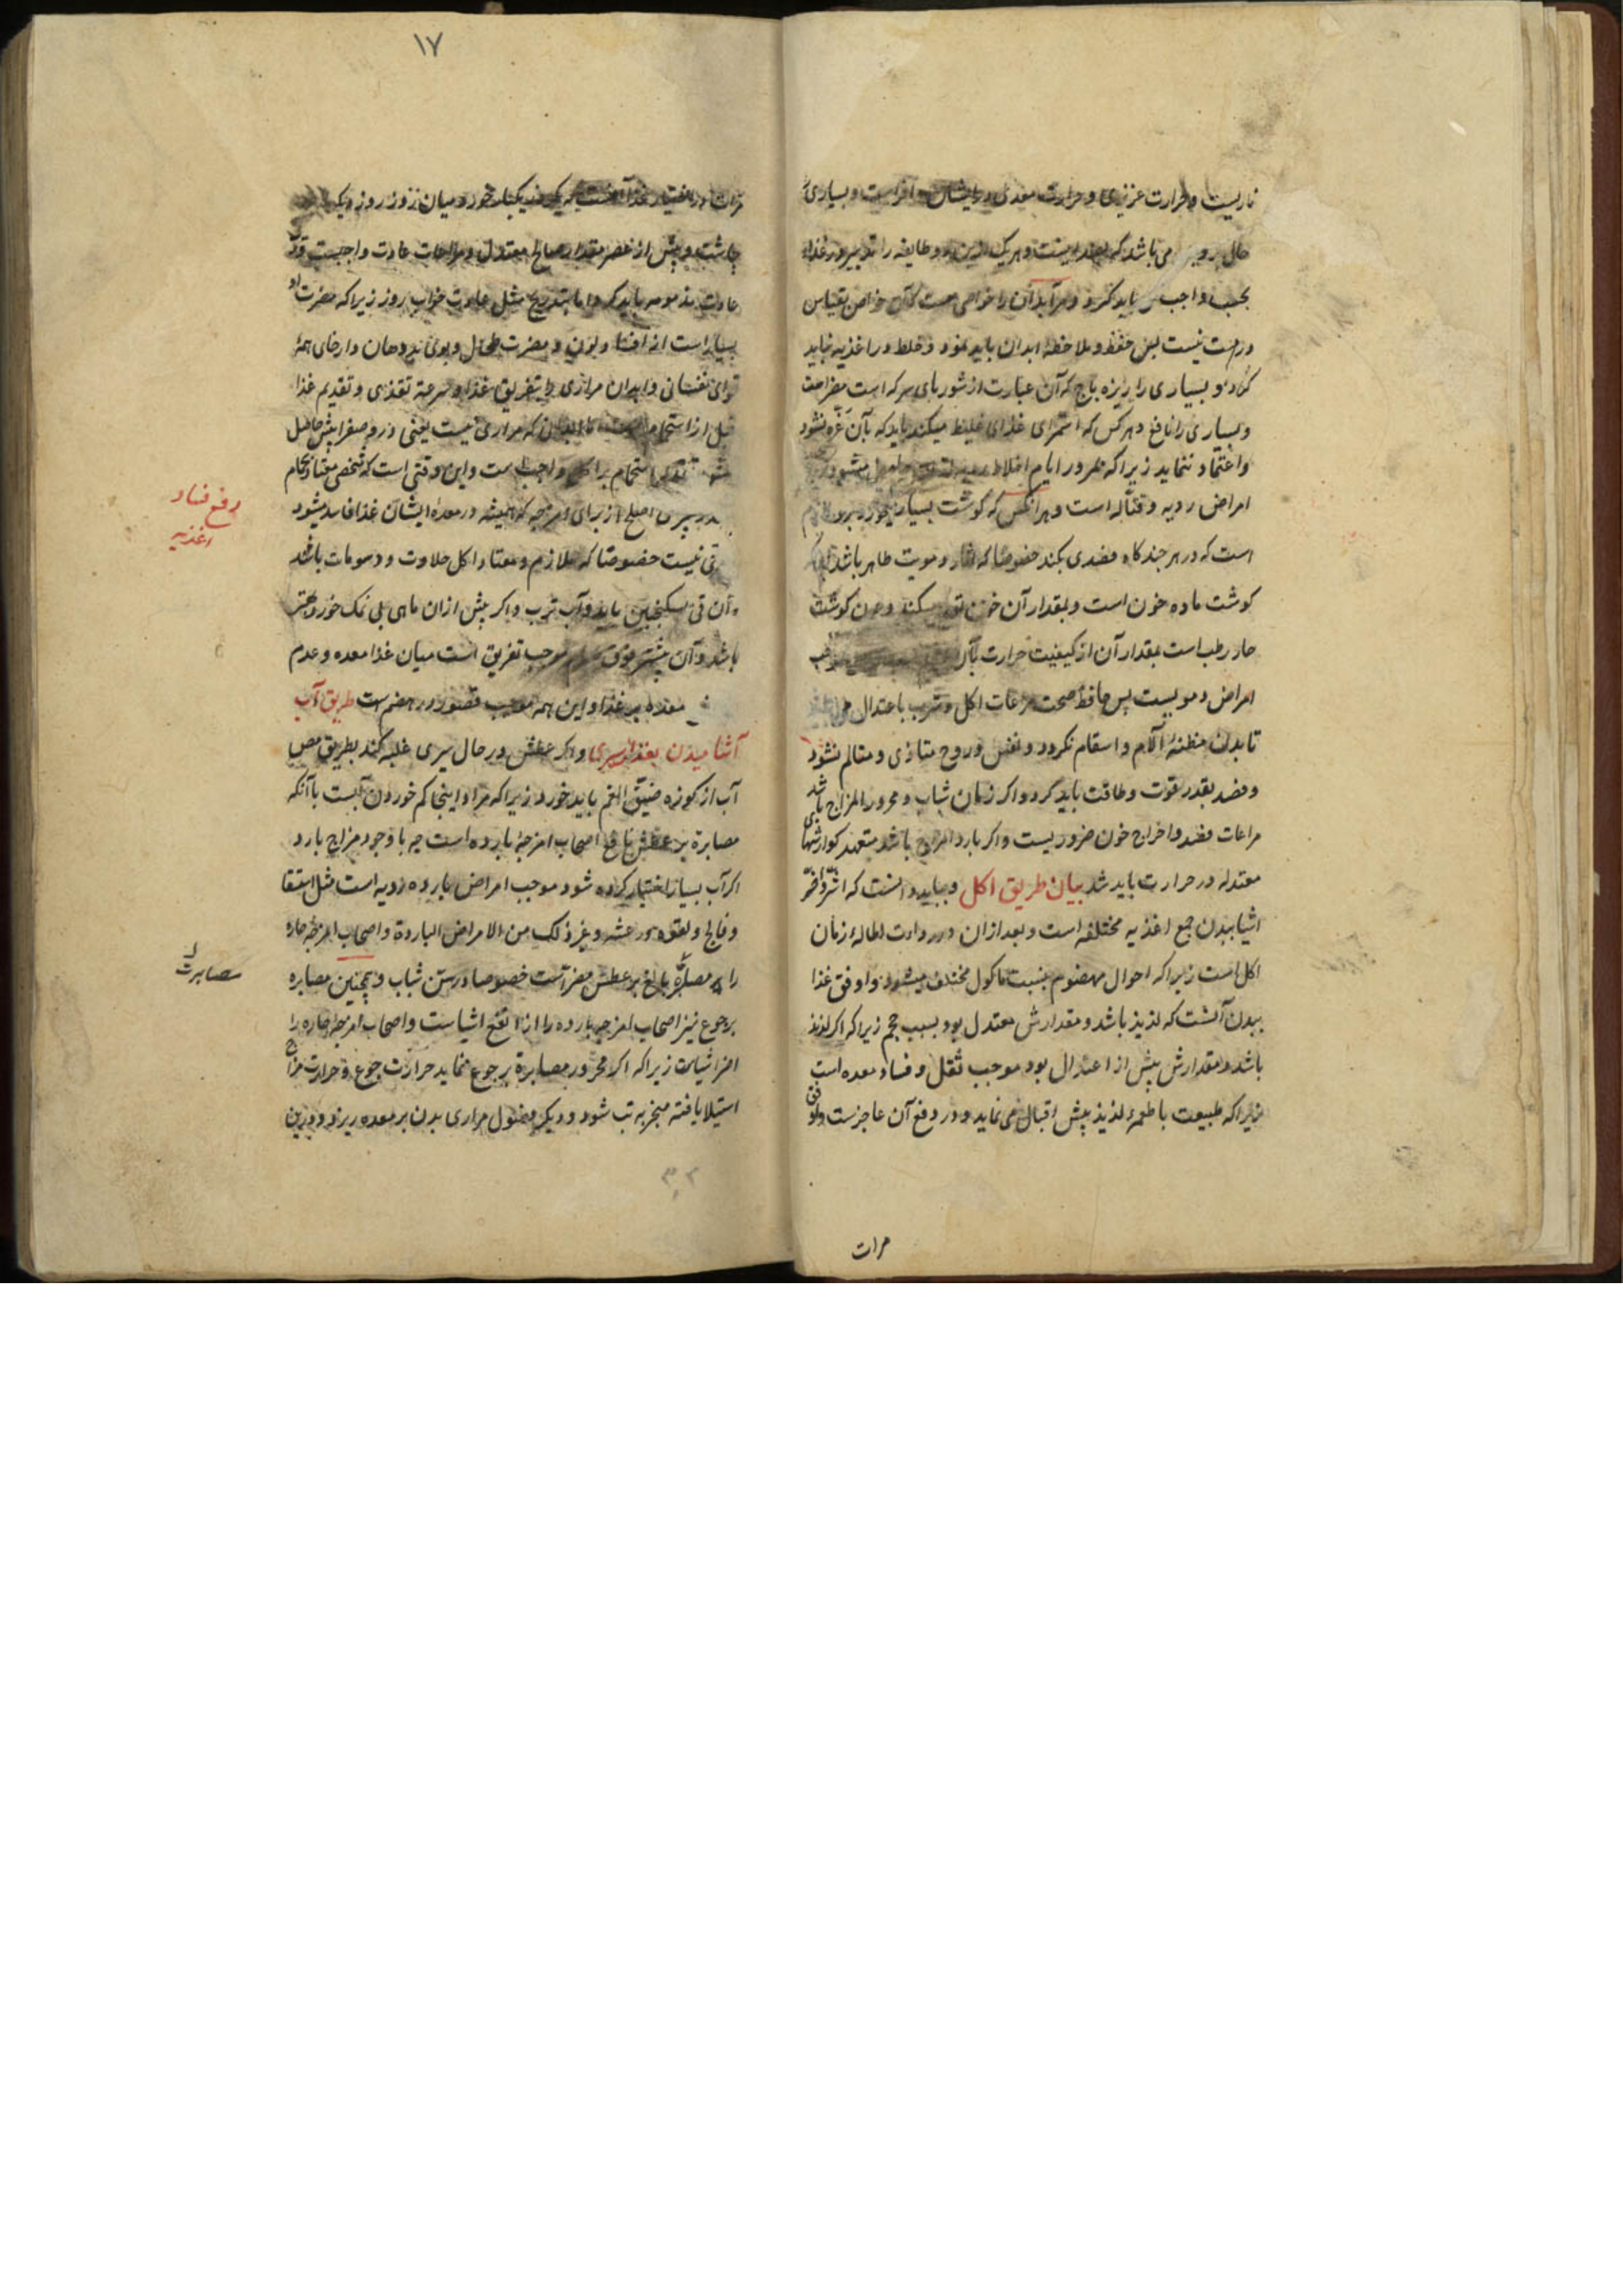 ناریست و حرارت عزیزی و حرارت معدی در ایشان وافراست و بسیاری
حال رو می باشد که بضد اینست و هر یک ازین دو طایفه را تدبیر در غذا
بحسب واجب باید کرد و هر آبدان را خواصی هست که آن خواص بقیاس
درست نیست پس حفظ و ملاحظه ابدان باید نمود و خلط در اغذیه نباید
کرد و بسیاری را زیره باج که آن عبارت از شوربای سرکه است مضراست
و بسیاری را نافع و هر کس که استمرای غذای غلیظ میکند باید که بآن غره نشود
و اعتماد ننماید زیرا که بمرور ایام اخلاط
امراض ردیه و قتاله است و هر آنکس که گوشت بسیار خورد برو لازم
است که در هر چند کاه فصدی بکند خصوصا که آثار دمویت ظاهر باشد
کوشت ماده خون است و بمقدار آن خون تولد میکند و چون کوشت
حار رطب است بمقدار آن از کیفیت حرارت بآن
امراض دمویست پس حافظ صحت مرعات اکل و شرب باعتدال
تا بدن مظنهٔ آلام و اسقام نکردد و نفس و روح متاذی و متالم نشود
و فصد بقدر قوت و طاقت باید کرد و اکر زمان شباب و محرور المزاج باشد
مراعات فصد و اخراج خون ضروریست و اکر بارد المزاج باشد متعهد کوارشهای
معتدله در حرارت باید شد بیان طریق اکل و بباید دانست که اشر و اضر
اشیا ببدن جمع اغذیه مختلفه است و بعد ازان در ردات اطالهٔ زمان
اکل است زیرا که احوال مهضوم بنسبت ماکول مختلف میشود و اوفق غذا
ببدن آنست که لذیذ باشد و مقدارش معتدل بود بسبب حجم زیرا که اکر لذیذ
باشد و مقدارش بیش از اعتدال بود موجب ثقل و فساد معده است
زیرا که طبیعت با طعمهٔ لذیذ بیش اقبال می نماید و در دفع آن عاجزست و اوفق
مرات
۱۷
مرات در اختیار غذا آنست که یکروز یکبار خورد میان روز و روز دیکر
چاشت و پیش از عصر مقدار صالح معتدل و مراعات عادت واجبست و ترک
عادت مذمومه باید کرد اما بتدریج مثل عادت خواب روز زیرا که مضرت او
بسیار است از افساد لون و مضرت طحال و بوی بد دهان و ارخای همهٔ
قوای نفسانی و ابدان مراری را تفریق غذا و سرعة تغذی و تقدیم غذا
قبل از استحمام است اما ابدان که مراری نیست یعنی درو صفرا بیش حاصل
نشود تقدیم استحمام بر اکل واجب است و این وقتی است که شخص معتاد حمام
تدبیری اصلح از برای امزجه که همیشه در معدهٔ ایشان غذا فاسد میشود
قی نیست خصوصا که ملازم و معتاد اکل حلاوت و دسومات باشد
و آن قی بسکنجبین باید و آب ترب و اکر پیش ازان ماهی بی نمک خورد بهتر
باشد و آن بیشتر موجب تفریق است میان غذا معده و عدم
معده بر غذا و این همه موجب قصور در هضم است طریق آب
آشامیدن بعد از سیری و اکر عطش در حال سیری غلبه کند بطریق مص
آب از کوزه ضیق الفم باید خورد زیرا که مراد اینجا کم خوردن آبست با آنکه
مصابرة بر عطش نافع اصحاب امزجهٔ بارده است چه با وجود مزاج بارد
اکر آب بسیار اختیار کرده شود موجب امراض بارده ردیه است مثل استسقا
و فالج و لقوه و رعشه و غیر ذلک من الامراض الباردة و اصحاب امزجهٔ حاره
را مصابرهٔ بالغ بر عطش مضر آنست خصوصا در سن شباب و همچنین مصابره
بر جوع نیز اصحاب امزجه بارده را از انفع اشیاست و اصحاب امزجهٔ حاره را
اضر اشیاست زیرا که اکر محرور مصابرة بر جوع نماید حرارت جوع و حرارت مزاج
استیلا یافته منجر به تب شود و دیکر فضول مراری بدن بر معده ریزد و درین
رفع فساد
اغذیه
مصابرت